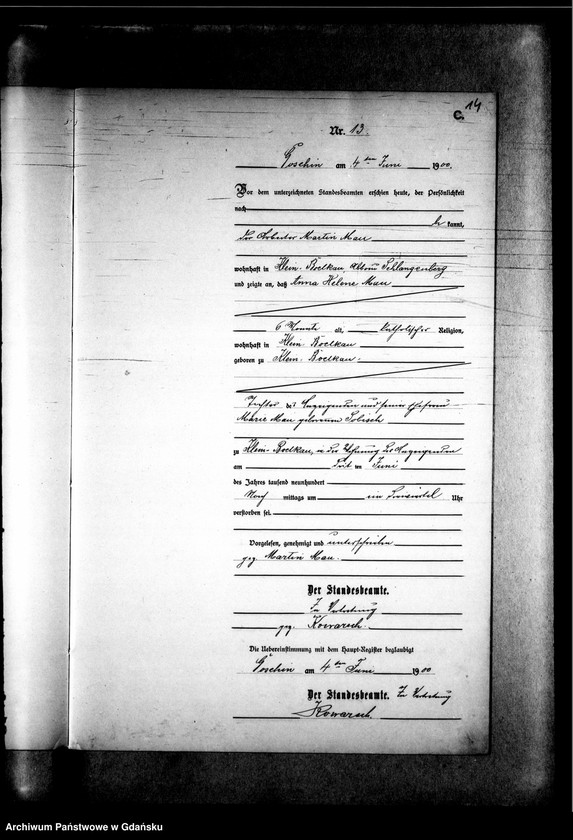 14
C.
Nr. 13.
Goschin am 4ten Juni 1900.
Vor dem unterzeichneten Standesbeamten erschien heute, der Persönlichkeit
nach
be kannt,
der Arbeiter Martin Mau
wohnhaft in Klein-Boelkau, Schlangenberg
und zeigte an, daß Anna Helene Mau
6 Monate alt, katholischer Religion,
wohnhaft in Klein Boelkau
geboren zu Klein-Boelkau.
Tochter des Anzeigenden und seiner Ehefrau
Marie Mau geborenen
zu Klein-Boelkau, in der Wohnung des Anzeigenden
am ten Juni
des Jahres tausend neunhundert
Nach mittags um ein Uhr
verstorben sei.
Vorgelesen, genehmigt und unterschrieben
gez. Martin Mau.
Der Standesbeamte.
In Vertretung
gez. Kowarsch.
Die Uebereinstimmung mit dem Haupt-Register beglaubigt
Goschin am 4ten Juni 1900
Der Standesbeamte. In Vertretung
Kowarsch.
Archiwum Państwowe w Gdańsku